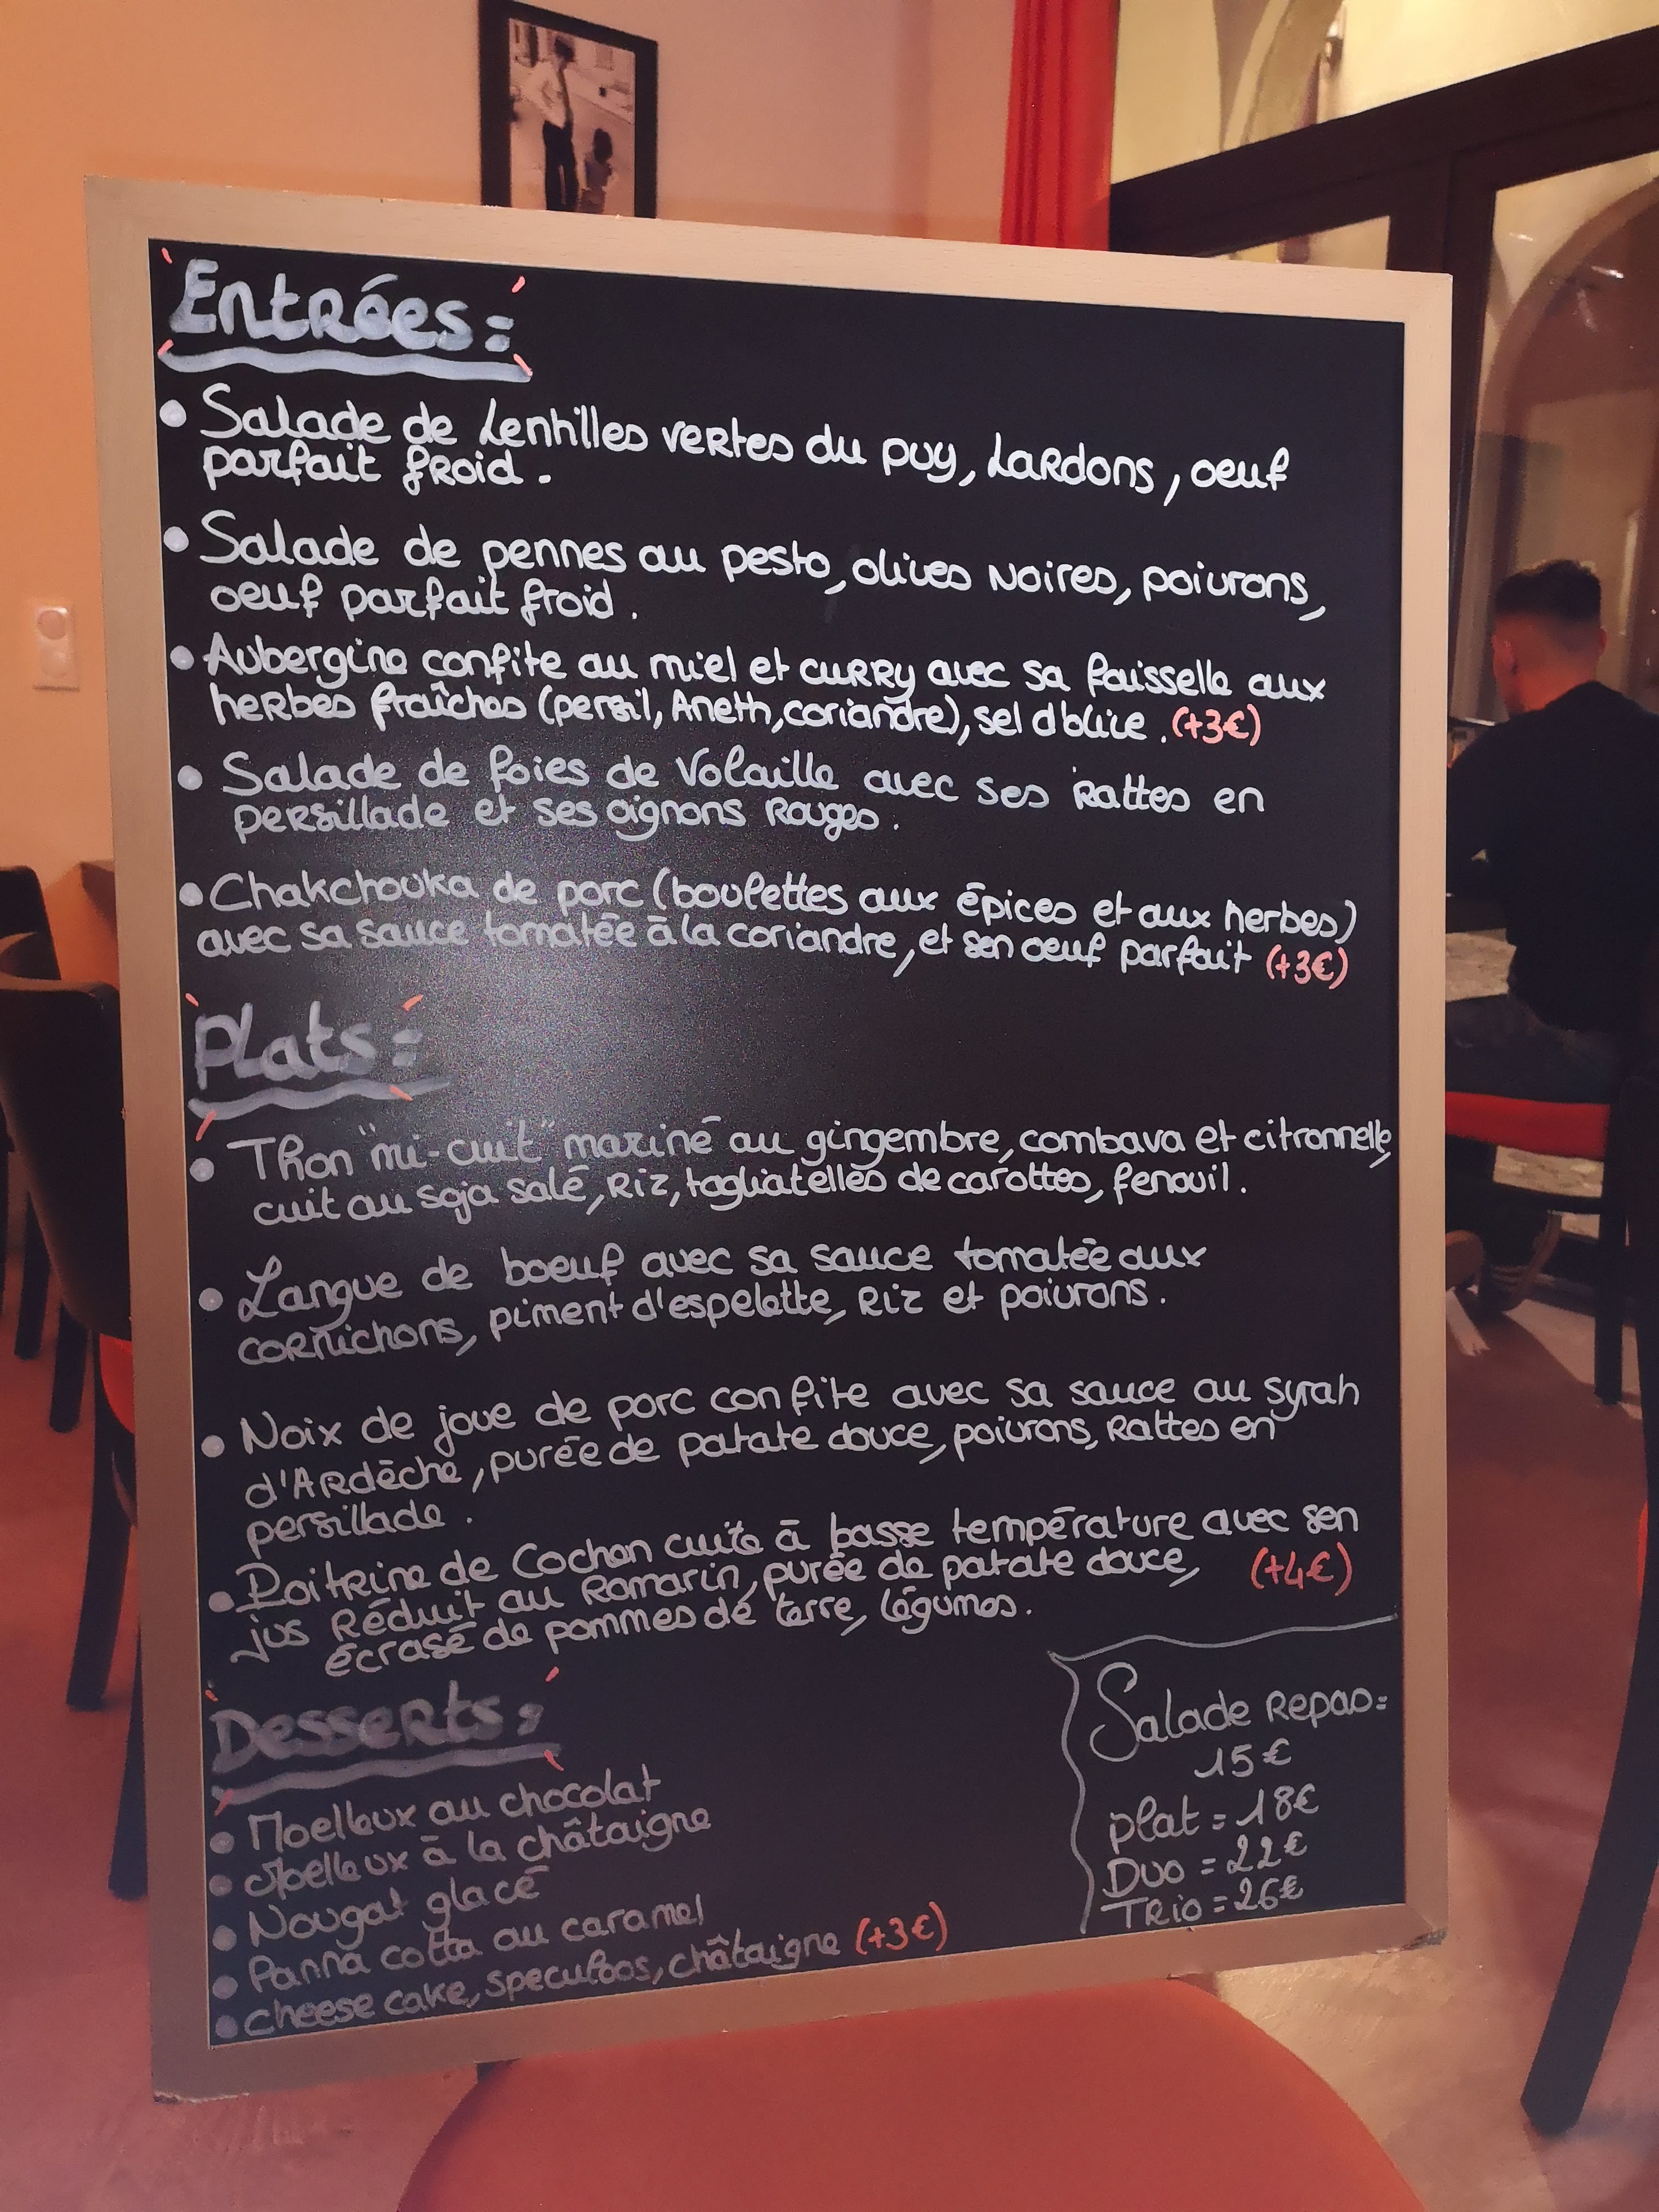 Entrées :
• Salade de Lentilles vertes du puy, Lardons, oeuf
parfait froid.
• Salade de pennes au pesto, olives Noires, poivrons,
oeuf parfait froid.
• Aubergine confite au miel et curry avec sa faisselle aux
herbes fraîches (persil, Aneth, coriandre), sel d'olive. (+3€)
• Salade de foies de Volaille avec ses Rattes en
persillade et ses oignons Rouges.
• Chakchouka de porc (boulettes aux épices et aux herbes)
avec sa sauce tomatée à la coriandre, et son oeuf parfait (+3€)
Plats :
• Thon "mi-cuit" mariné au gingembre, combava et citronnelle,
cuit au soja salé, Riz, tagliatelles de carottes, fenouil.
• Langue de boeuf avec sa sauce tomatée aux
cornichons, piment d'espelette, Riz et poivrons.
• Noix de joue de porc confite avec sa sauce au syrah
d'Ardèche, purée de patate douce, poivrons, Rattes en
persillade.
• Poitrine de Cochon cuite à basse température avec son
jus Réduit au Romarin, purée de patate douce, (+4€)
écrasé de pommes de terre, légumes.
Desserts :
• Moelleux au chocolat
• Moelleux à la châtaigne
• Nougat glacé
• Panna cotta au caramel
• cheese cake, speculoos, châtaigne (+3€)
Salade Repas =
15€
plat = 18€
Duo = 22€
Trio = 26€